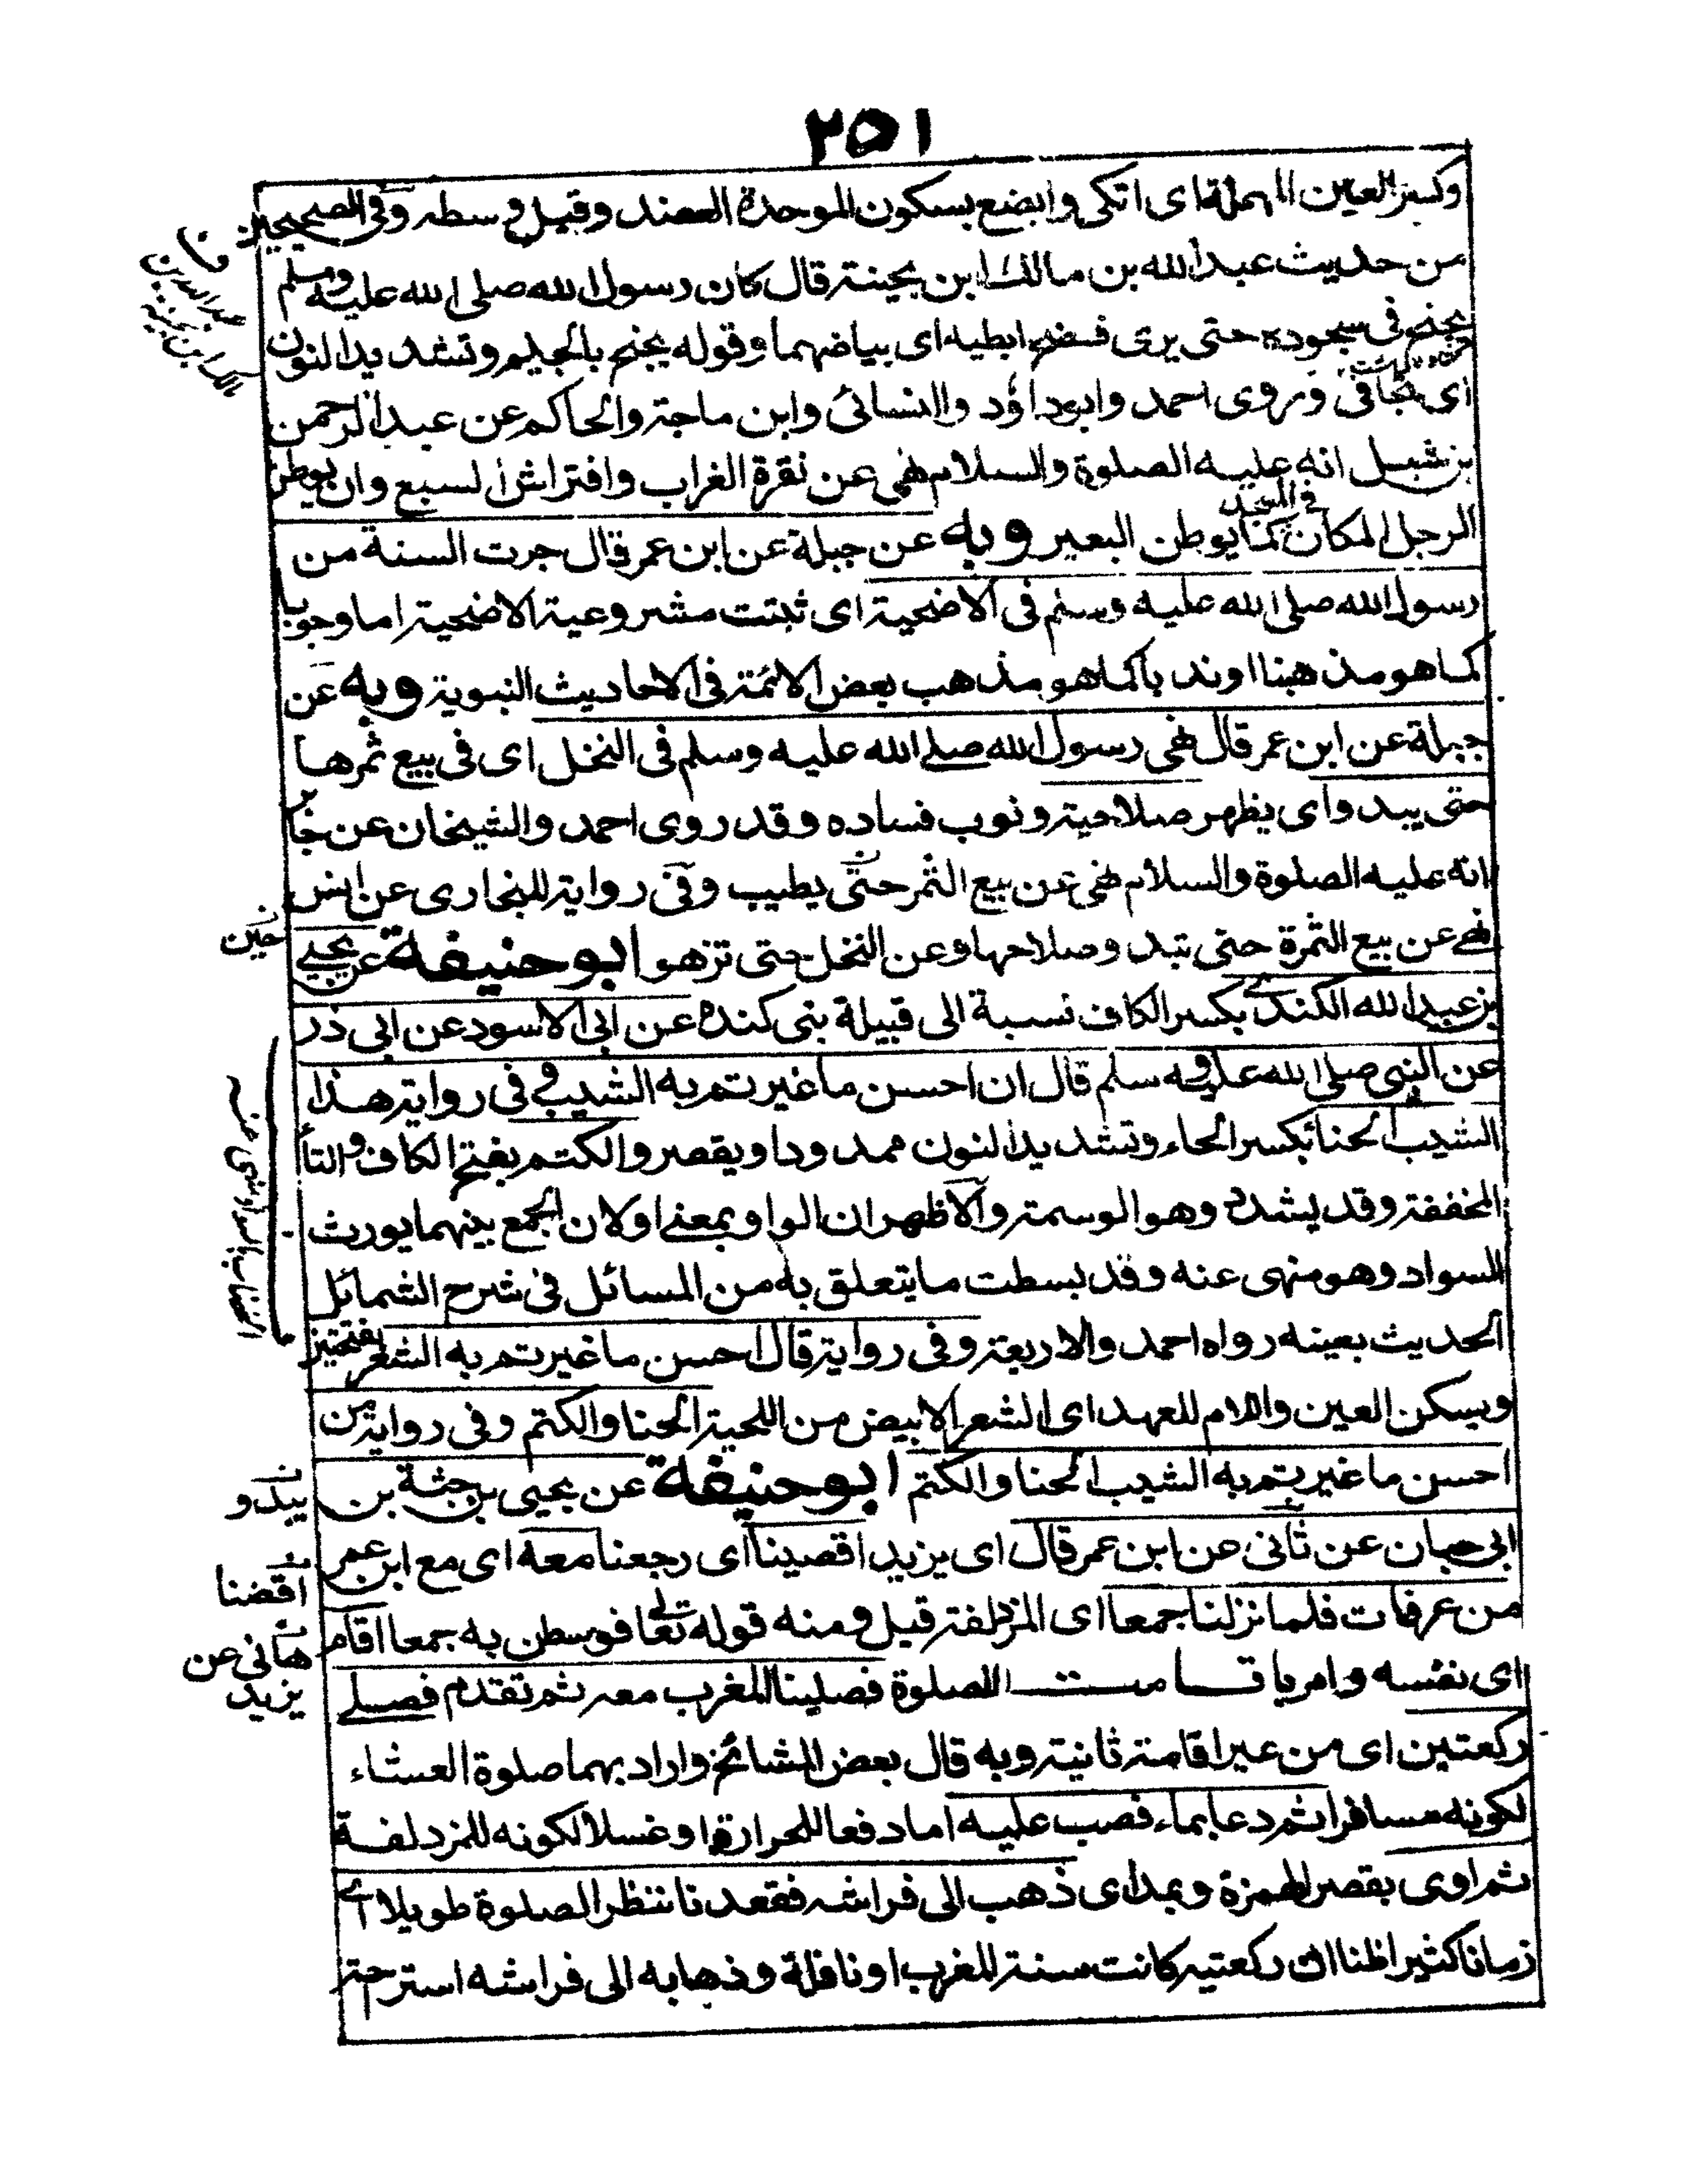 ٢٥١
وكسر العين المهملة اى اتكى وابضع بسكون الموحدة العضد وقيل وسطه وفى الصحيحين
من حديث عبد الله بن مالك ابن بحينة قال كان رسول الله صلى الله عليه وسلم
يجنح فى سجوده حتى يرى فضح ابطيه اى بياضهما وقوله يجنح بالجيم وتشديد النون
اى يجافى وروى احمد وابوداؤد والنسائى وابن ماجة والحاكم عن عبد الرحمن
بن شبل انه عليه الصلوة والسلام نهى عن نقرة الغراب وافتراش السبع وان يوطن
الرجل المكان فى المسجد كما يوطن البعير وبه عن جبلة عن ابن عمر قال جرت السنة من
رسول الله صلى الله عليه وسلم فى الاضحية اى ثبتت مشروعية الاضحية اما وجوبا
كما هو مذهبنا او ندباكما هو مذهب بعض الائمة فى الاحاديث النبوية وبه عن
جبلة عن ابن عمر قال نهى رسول الله صلى الله عليه وسلم فى النخل اى فى بيع ثمرها
حتى يبدو اى يظهر صلاحيته ونوب فساده وقد روى احمد والشيخان عن جا
انه عليه الصلوة والسلام نهى عن بيع الثمر حتى يطيب وفى رواية للبخارى عن انس
نهى عن بيع الثمرة حتى تبدو صلاحها وعن النخل حتى تزهو ابو حنيفة عن يحيى
بن عبد الله الكندى بكسر الكاف نسبة الى قبيلة بنى كنده عن ابى الاسود عن ابى ذر
عن النبى صلى الله عليه وسلم قال ان احسن ما غيرتم به الشيب وفى رواية هذا
الشيب الحنا بكسر الحاء وتشديد النون ممدودا ويقصر والكتم بفتح الكاف والتا
المخففة وقد يشدد وهو الوسمة والاظهر ان الواو بمعنى او لان الجمع بينهما يورث
السواد وهو منهى عنه وقد بسطت ما يتعلق به من المسائل فى شرح الشمائل
الحديث بعينه رواه احمد والاربعة وفى رواية قال احسن ما غيرتم به الشعر بفتحتين
ويسكن العين واللام للعهد اى الشعر الابيض من اللحية الحنا والكتم وفى رواية من
احسن ما غيرتم به الشيب الحنا والكتم ابو حنيفة عن يحيى بن جثة بن
ابى حبان عن ثانى عن ابن عمر قال اى يزيد اقضينا اى رجعنا معه اى مع ابن عمر
من عرفات فلما نزلنا جمعا اى المزدلفة قيل ومنه قوله تعالى فوسطن به جمعا اقام
اى نفسه وامر باقامت الصلوة فصلينا المغرب معه ثم تقدم فصلى
ركعتين اى من غير اقامة ثانية وبه قال بعض المشائخ واراد بهما صلوة العشاء
لكونه مسافرا ثم دعا بماء فصب عليه اما دفعا للحرارة او غسلا لكونه للمزدلفة
ثم اوى بقصر الهمزة وبمد اى ذهب الى فراشه فقعدنا ننتظر الصلوة طويلا اى
زمانا كثيرا ظنا ان ركعتيه كانت سنة المغرب او نافلة وذهابه الى فراشه استرحة
حين
يبدو
افضنا
هانى عن
يزيد